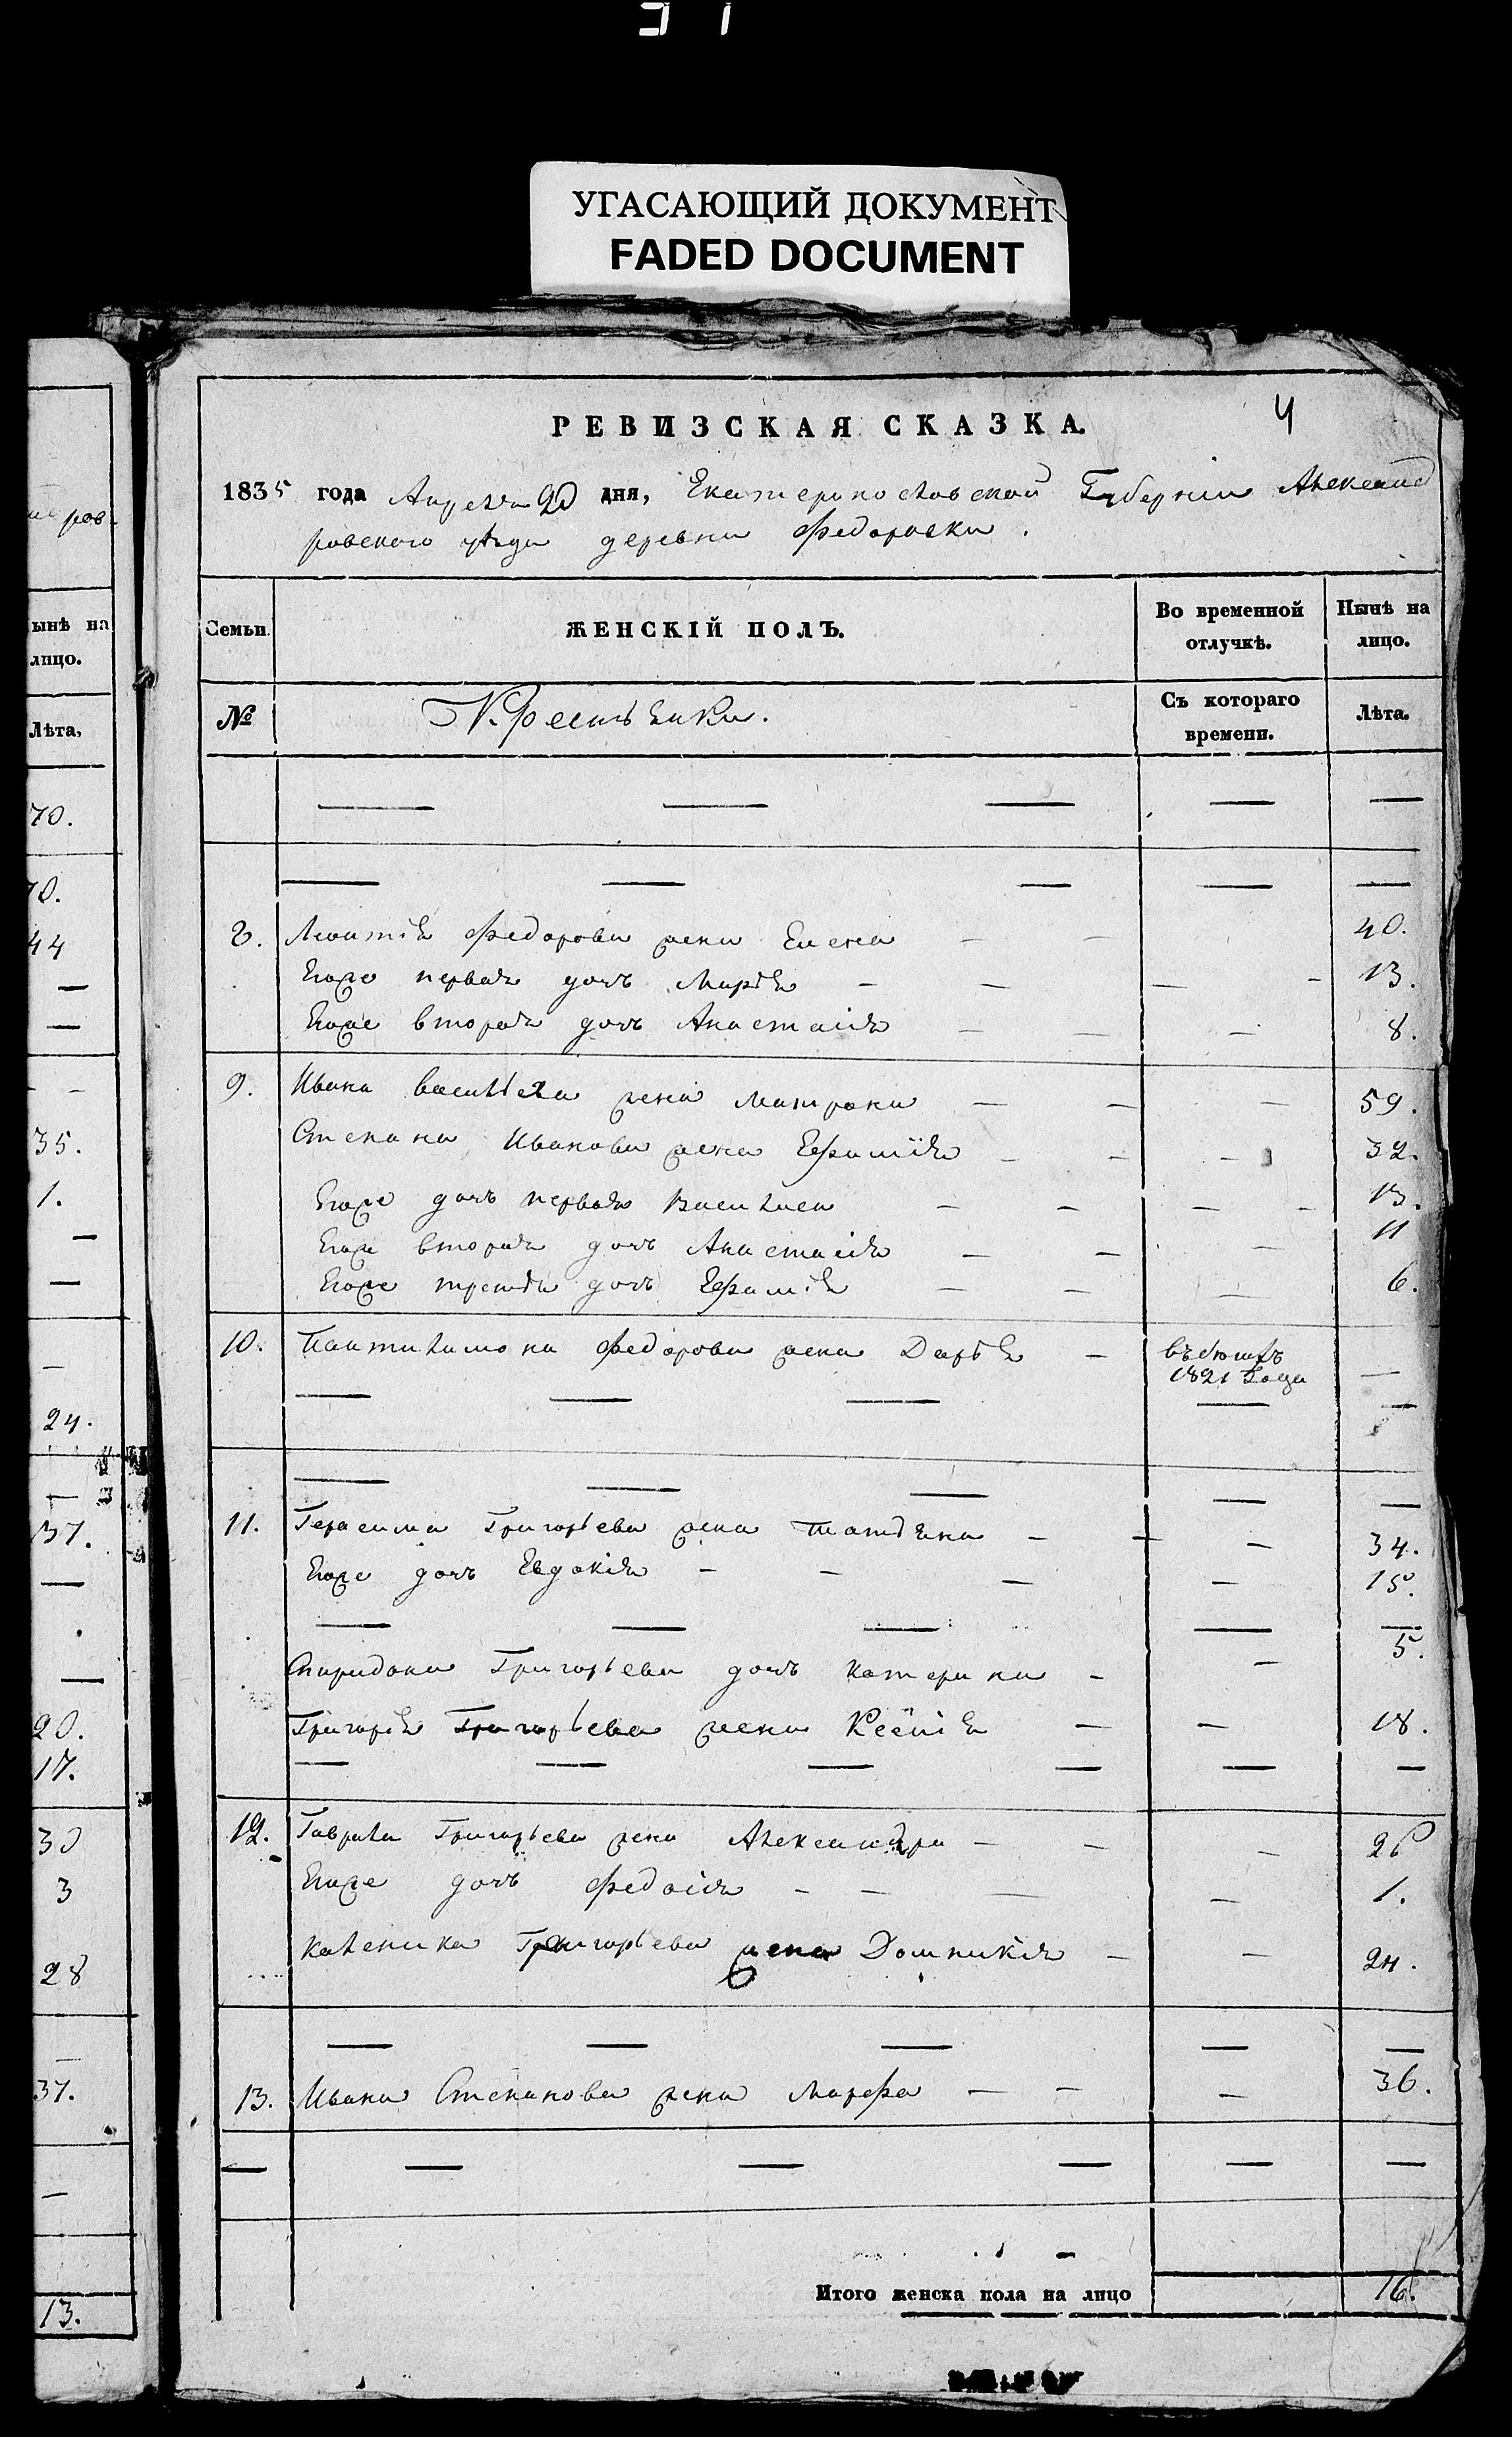 УГАСАЮЩИЙ ДОКУМЕНТ
FADED DOCUMENT
4
РЕВИЗСКАЯ СКАЗКА.
1835 года Апреля 20 дня, Екатеринославской Губерніи Александ
ровского уѣзда деревни Федоровки.
Семьи. ЖЕНСКІЙ ПОЛЪ. Во временной отлучкѣ. Нынѣ на лицо.
№ Крестьянки. Съ котораго времени. Лѣта.
— — — — —
— — — — —
8. Леонтія Федорова жена Елена — — 40.
Егоже первая дочь Марія — — — - 13.
Егоже вторая дочь Анастасія — — — 8.
9. Ивана Васильева жена Матрона — — — 59.
Степана Иванова жена Ефимія — — — 32.
Егоже дочь первая Василиса — — — - 13.
Егоже вторая дочь Анастасія — — — 11
Егоже третія дочь Ефимія — — — 6.
10. Пантилимона Федорова жена Дарія — въ бѣгахъ
1821 Года —
— — — — —
— — — — —
11. Герасима Григорьева жена Татіяна — — — 34.
Егоже дочь Евдокія — — — — 15.
— — — — —
Спиридона Григорьева дочь Катерина — — 5.
Григорія Григорьева жена Ксенія — — 18.
— — — — — —
12. Гаврила Григорьева жена Александра — — — 26
Егоже дочь Федосія — — — — 1.
Каленика Григорьева жена Домникія — — 24.
— — — — —
13. Ивана Степанова жена Марфа — — — 36.
— — — — — —
Итого женска пола на лицо 16.
ров.
ынѣ на
лицо.
Лѣта,
70.
70.
44
—
—
- -
35.
1.
—
—
—
24.
—
37.
—
—
20.
17.
30
3
28
—
37.
—
13.